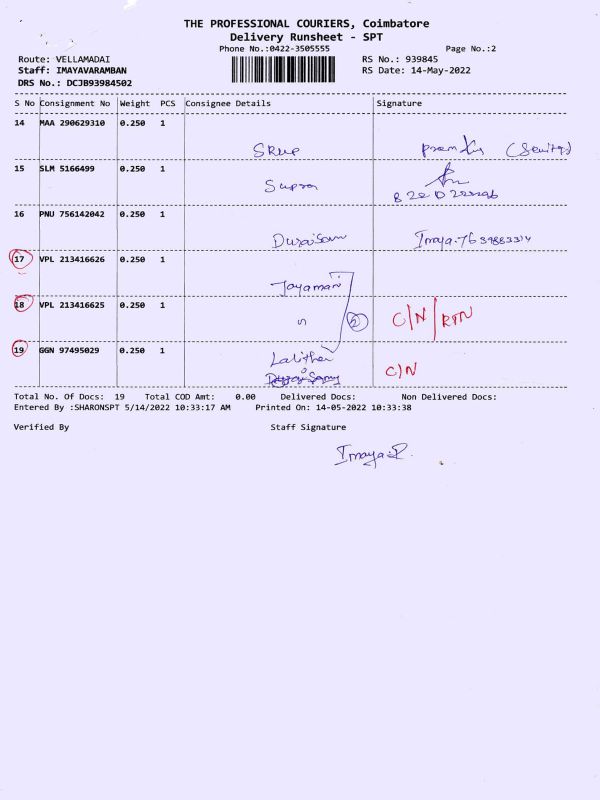 THE PROFESSIONAL COURIERS, Coimbatore
Delivery Runsheet - SPT
Phone No.:0422-3505555 Page No.:2
Route: VELLAMADAI RS No.: 939845
Staff: IMAYAVARAMBAN RS Date: 14-May-2022
DRS No.: DCJB93984502
S No Consignment No Weight PCS Consignee Details Signature
14 MAA 290629310 0.250 1
15 SLM 5166499 0.250 1
Supra
16 PNU 756142042 0.250 1
Duraisam
17 VPL 213416626 0.250 1
Jayamani
18 VPL 213416625 0.250 1
2 C/N RTN
19 GGN 97495029 0.250 1
Lalitha
C/N
Total No. Of Docs: 19 Total COD Amt: 0.00 Delivered Docs: Non Delivered Docs:
Entered By :SHARONSPT 5/14/2022 10:33:17 AM Printed On: 14-05-2022 10:33:38
Verified By Staff Signature